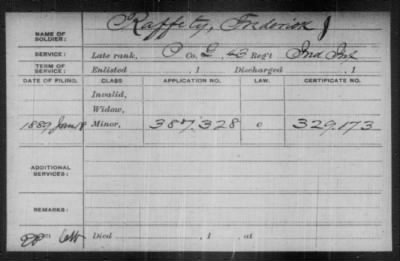 NAME OF SOLDIER: Raffety, Frederick J
SERVICE: Late rank, P Co. E, 43 Reg't Ind Inf
TERM OF SERVICE: Enlisted , 1 Discharged , 1
DATE OF FILING. CLASS. APPLICATION NO. LAW. CERTIFICATE NO.
Invalid,
Widow,
1889 Minor, 387.328 c 329.173
ADDITIONAL SERVICES:
REMARKS:
Died , 1 , at